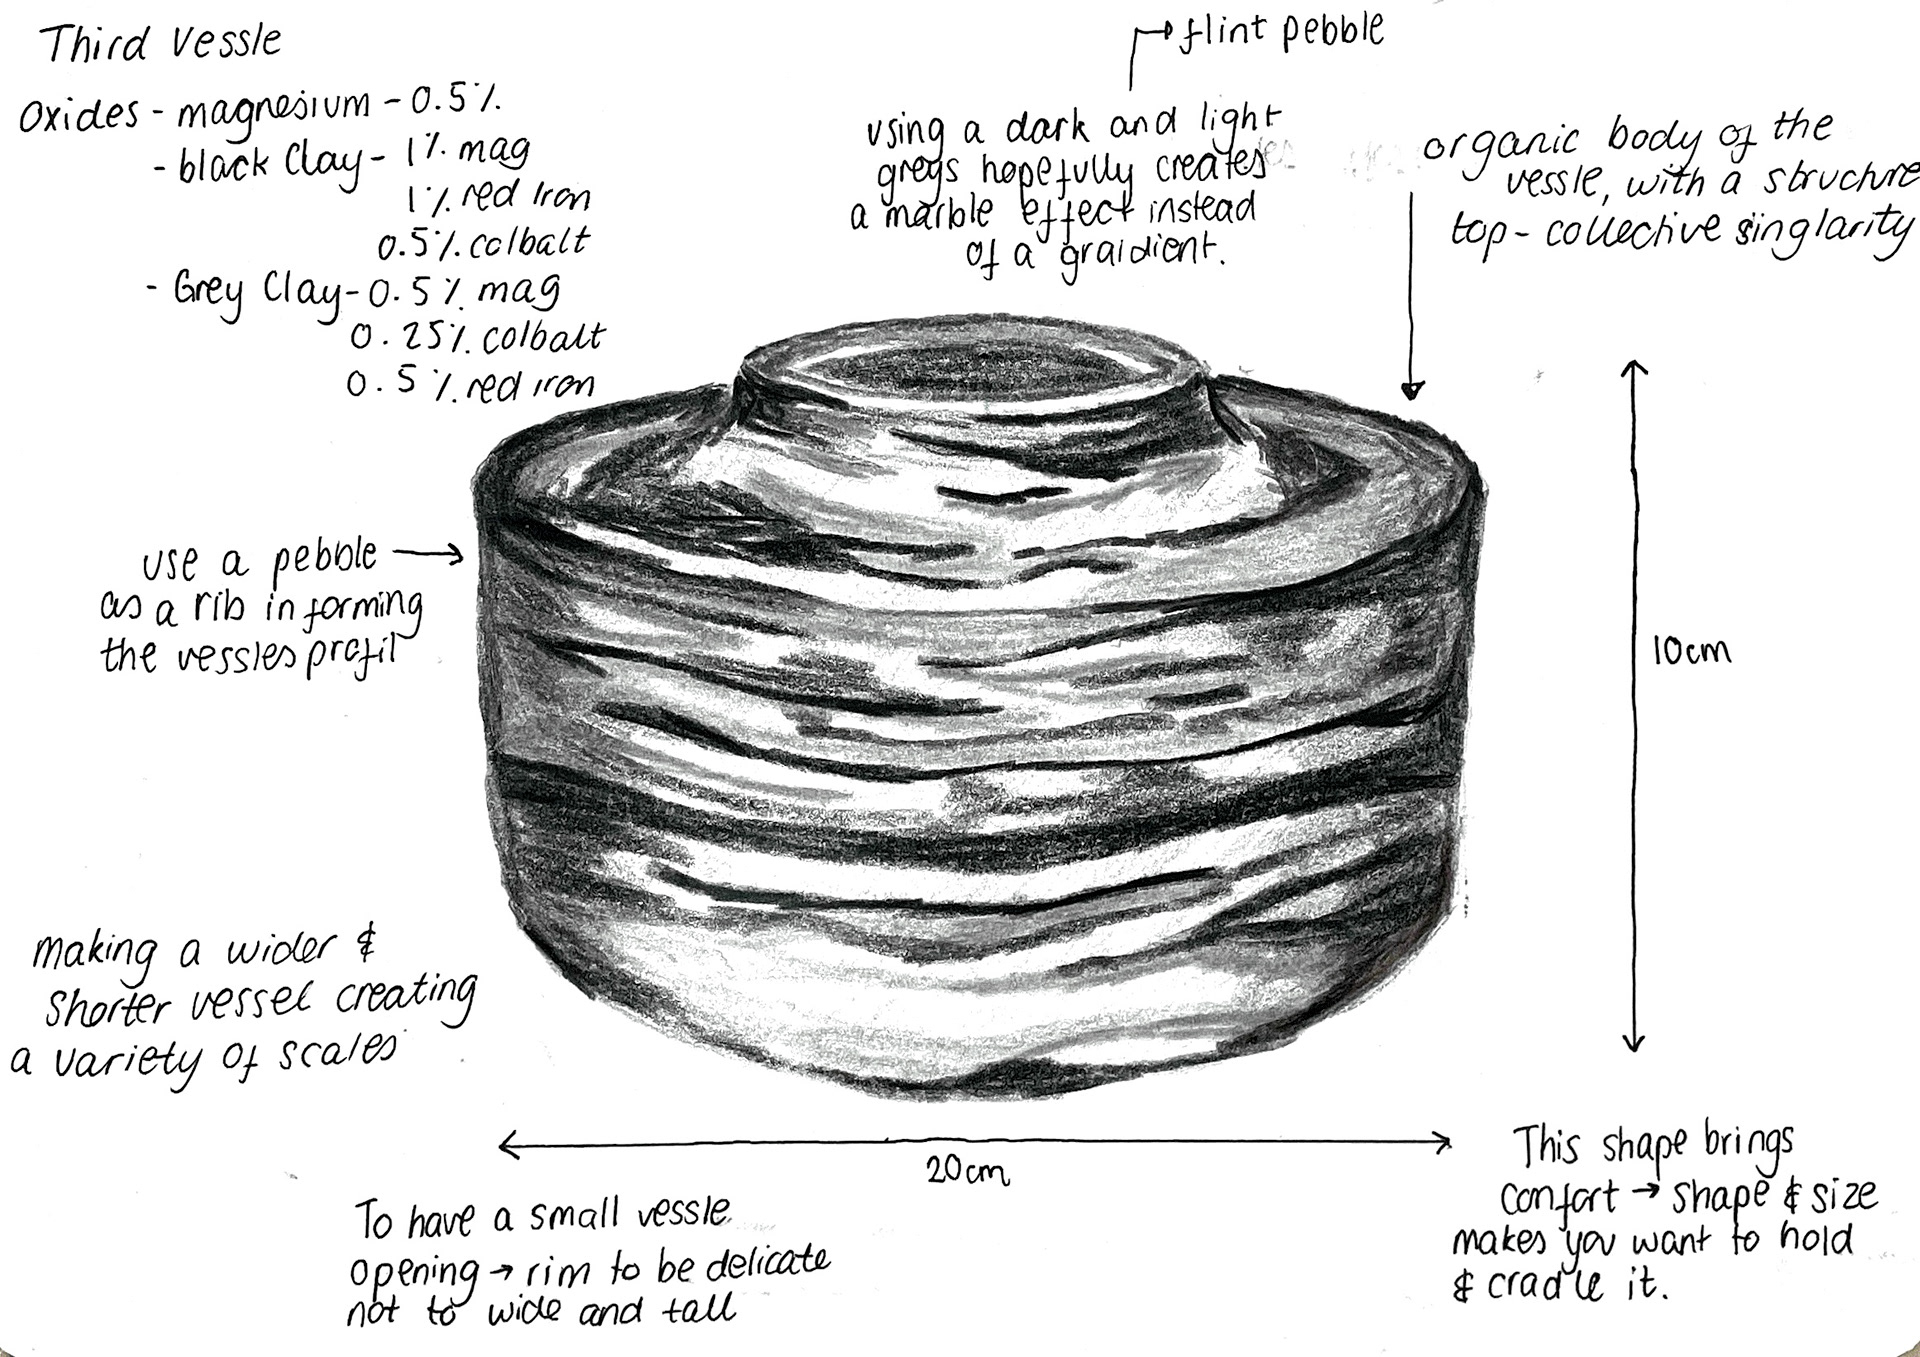 Third Vessle
Oxides - magnesium - 0.5%
- black Clay - 1% mag
1% red Iron
0.5% colbalt
- Grey Clay - 0.5% mag
0.25% colbalt
0.5% red iron
→ flint pebble
using a dark and light
greys hopefully creates
a marble effect instead
of a graidient.
organic body of the
vessle, with a structure
top - collective singlarity
use a pebble →
as a rib in forming
the vessles profil
10cm
making a wider &
shorter vessel creating
a variety of scales
20cm
To have a small vessle
opening → rim to be delicate
not to wide and tall
This shape brings
confort → shape & size
makes you want to hold
& cradle it.